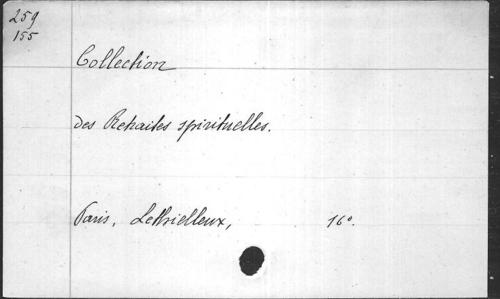 259
155
Collection
des Retraites spirituelles.
Paris, Lethielleux, 16°.